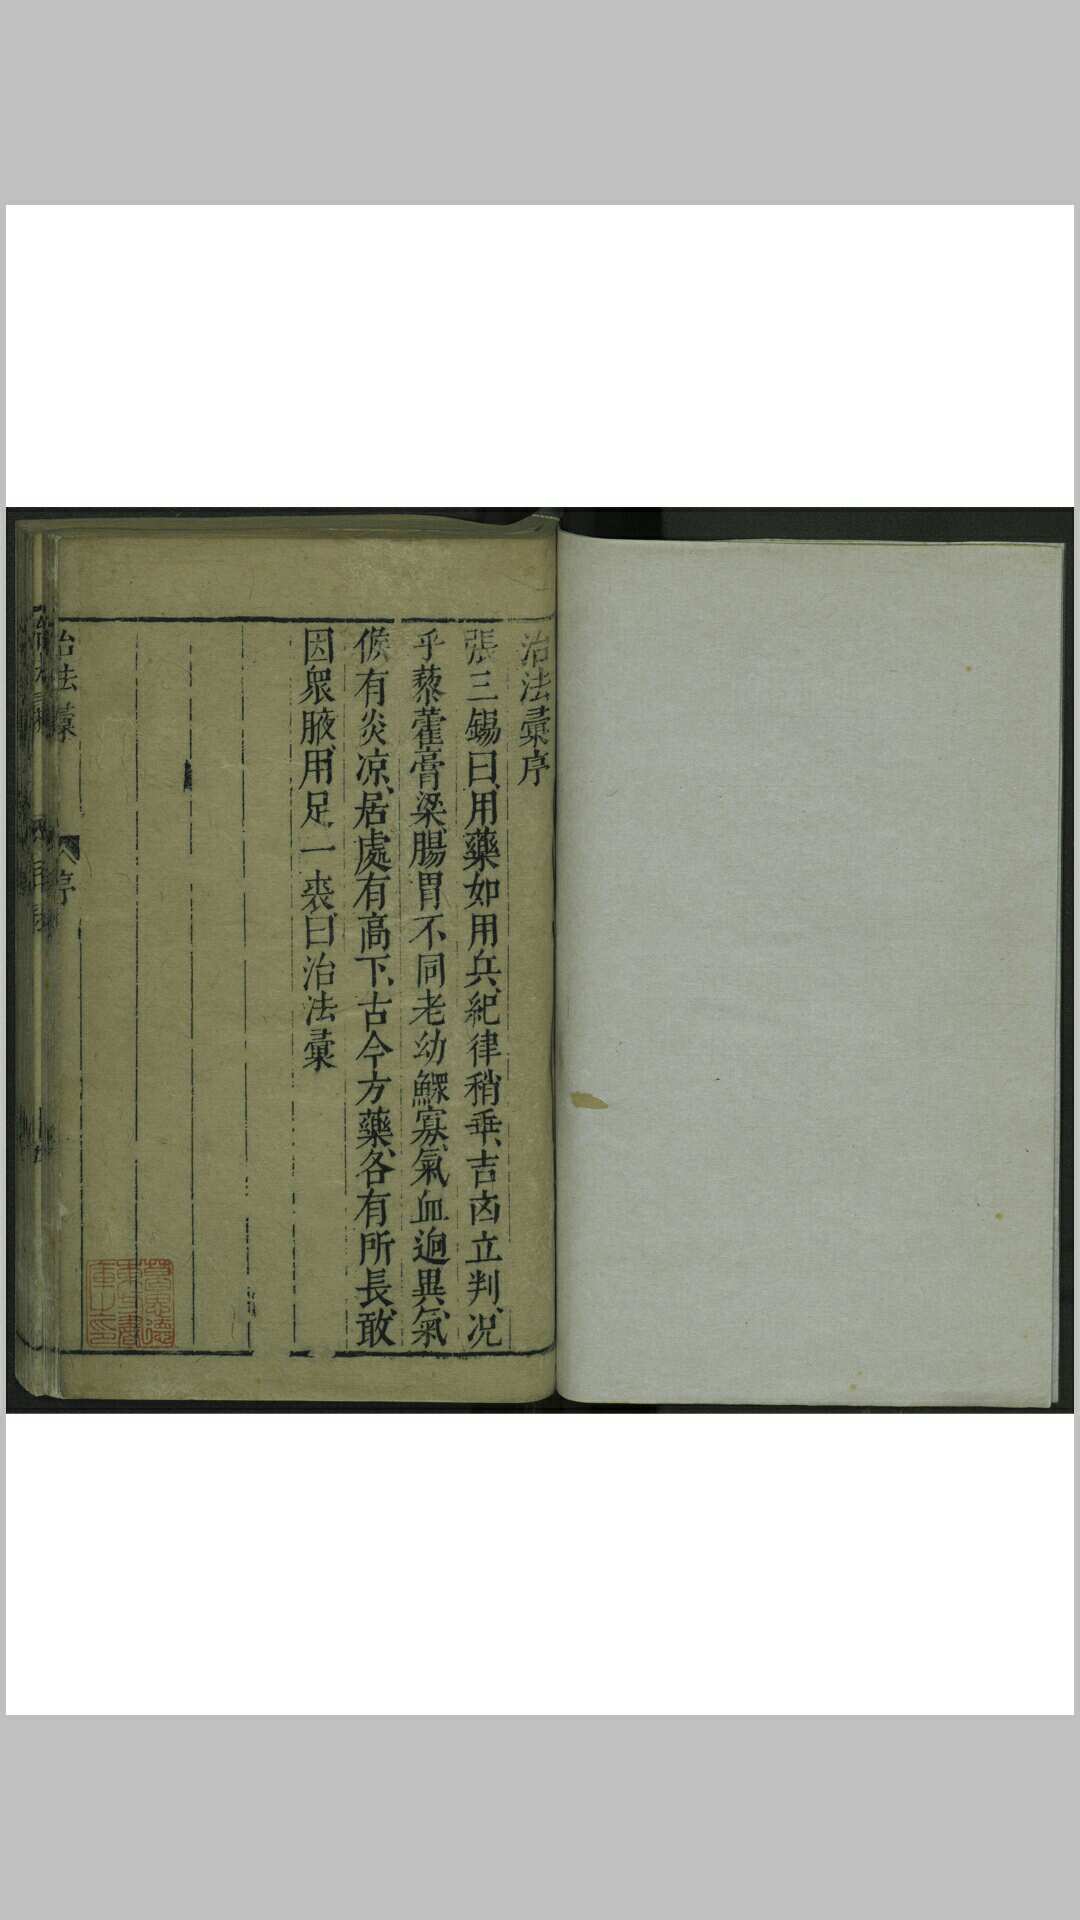 治法彙序
張三錫曰、用藥如用兵、紀律稍乖、吉凶立判、況
乎藜藿膏梁、腸胃不同、老幼鰥寡、氣血逈異、氣
候有炎凉、居處有高下、古今方藥、各有所長、敢
因衆腋、用足一裘、曰治法彙
治法彙
序